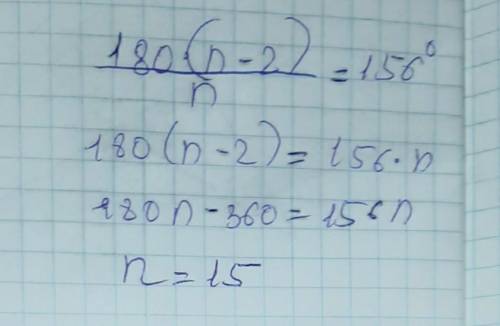 180(n-2)/n = 156°
180(n-2) = 156·n
180n - 360 = 156n
n = 15